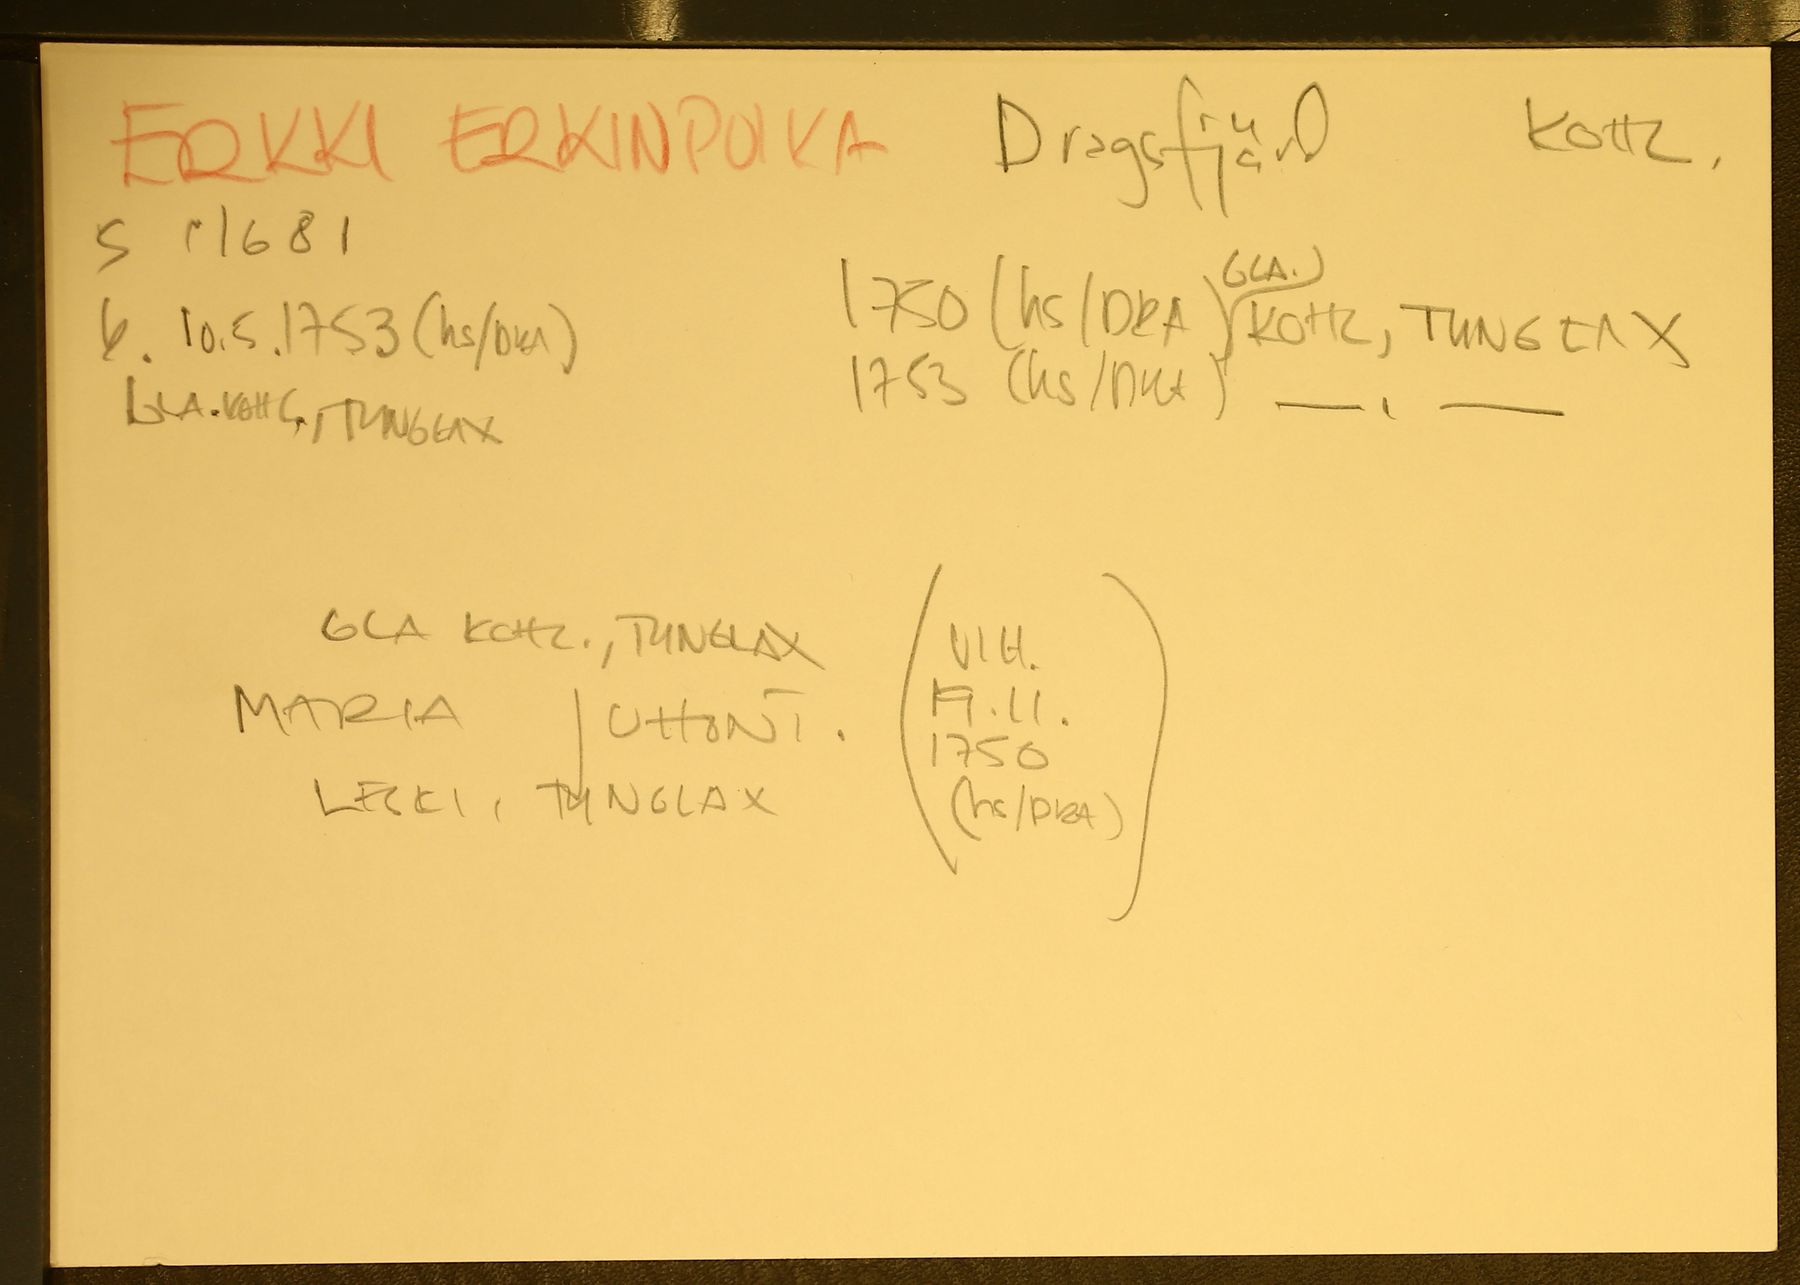 ERKKI ERKINPOIKA Dragsfjärd KOHZ.
S n/1681
k. 10.5.1753 (hs/DRA)
GLA. KOHZ., TUNGLAX
GLA.
1750 (hs/DRA) KOHZ, TUNGLAX
1753 (hs/DRA) — , —
GLA KOHZ., TUNGLAX
MARIA JUHONT.
LESKI, TUNGLAX
(VIH.
19.11.
1750
(hs/DRA))